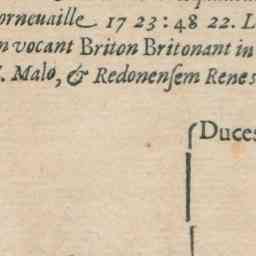 orneuaille 17 23:48 22. L
n vocant Briton Britonant in
. Malo, & Redonenſem Renes
Duces